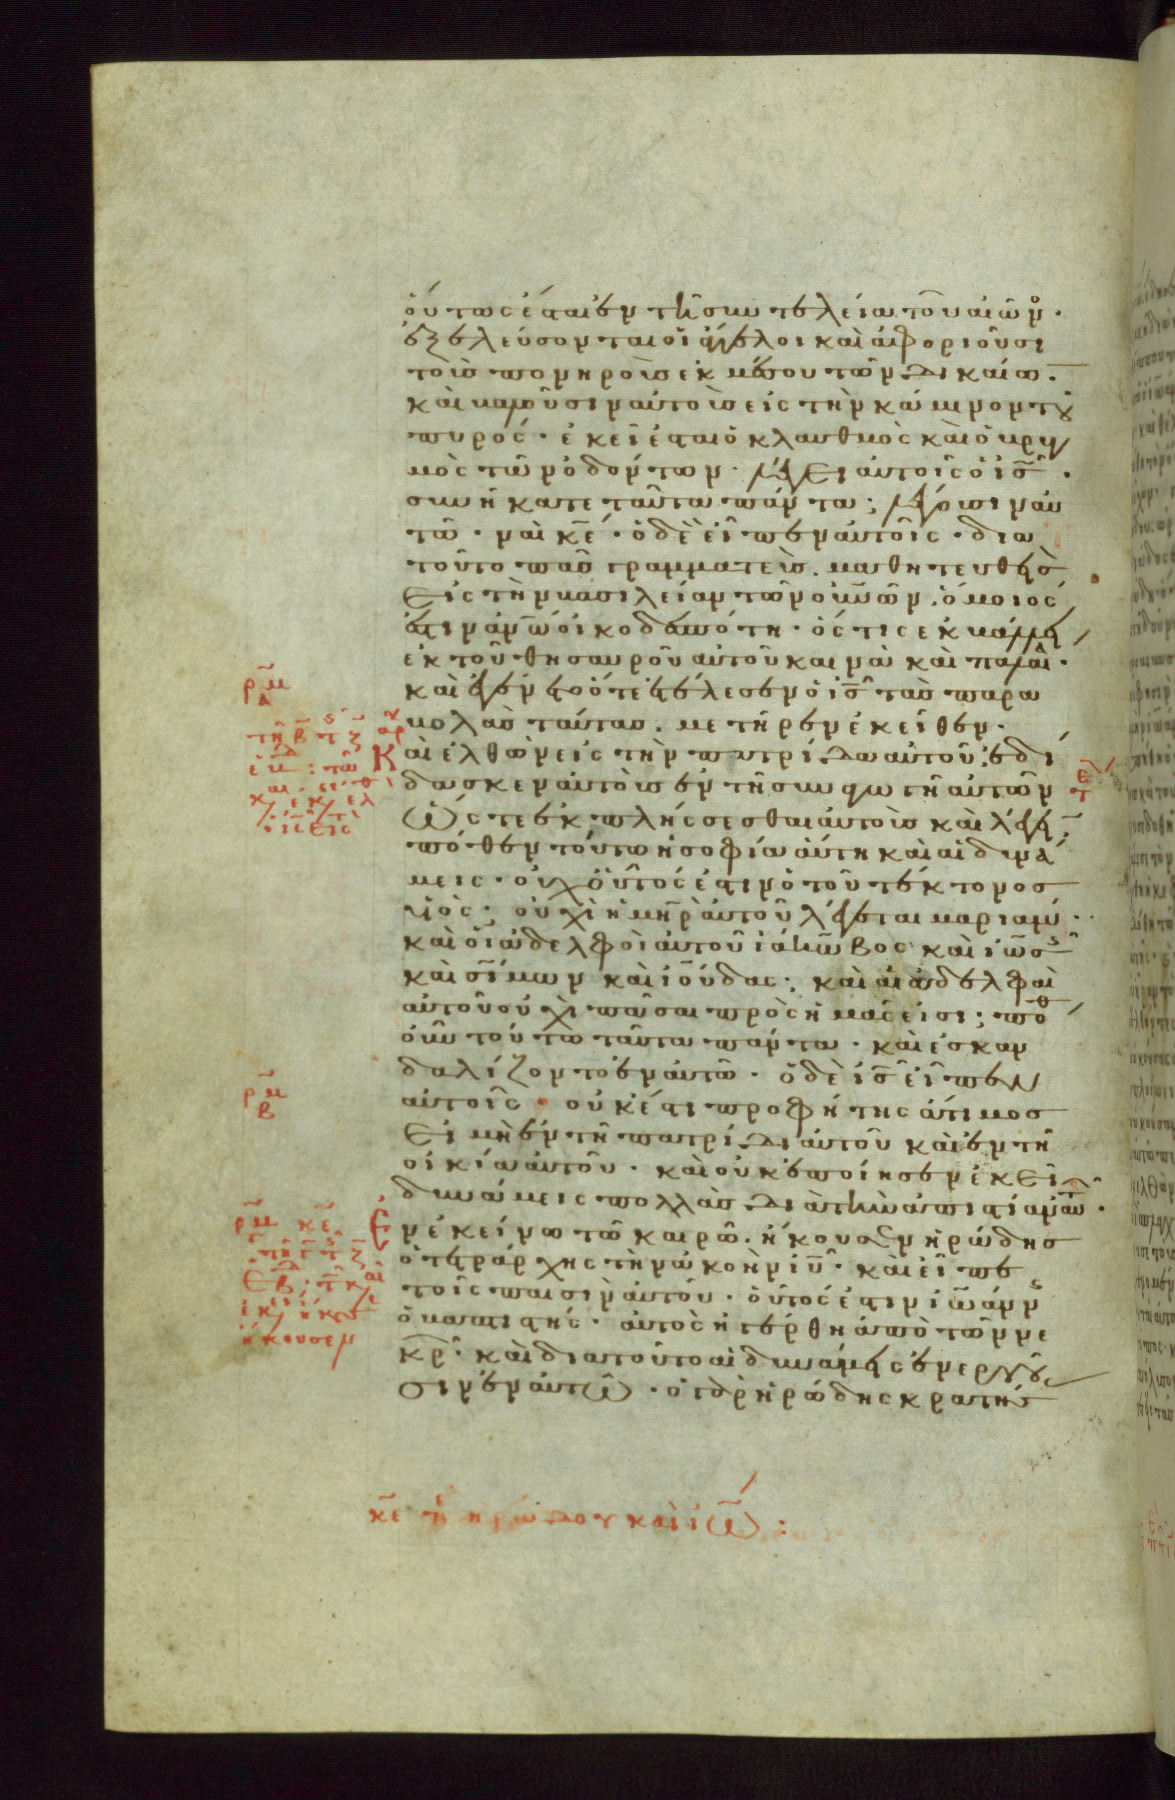 οὕτως ἔσται ἐν τῆ συντελεία τοῦ αἰῶν·
ἐξελεύσονται οἱ ἄγγελοι καὶ ἀφοριοῦσι
τοὺς πονηροὺς ἐκ μέσου τῶν δικαίω·
καὶ βαλοῦσιν αὐτοὺς εἰς τὴν κάμινον τοῦ
πυρός· ἐκεῖ ἔσται ὁ κλαυθμὸς καὶ ὁ βρυγ
μὸς τῶν ὀδόντων· λέγει αὐτοῖς ὁ ις·
συνήκατε ταῦτα πάντα; λέγουσιν αὐ
τῶ· ναὶ κε· ὁ δὲ εἶπεν αὐτοῖς· δια
τοῦτο πᾶς γραμματεὺς μαθητευθεὶς
εἰς τὴν βασιλείαν τῶν οὐνῶν· ὅμοιός
ἐστιν ἀνω οἰκοδεσπότη· ὅστις ἐκβάλλει
ἐκ τοῦ θησαυροῦ αὐτοῦ καινὰ καὶ παλαι·
καὶ ἐγένετο ὅτε ἐτέλεσεν ὁ ις τὰς παρα
βολὰς ταύτας. μετῆρεν ἐκεῖθεν·
Καὶ ἐλθὼν εἰς τὴν πατρίδα αὐτοῦ, ἐδί
δασκεν αὐτοὺς ἐν τῆ συναγωγῆ αὐτῶν
ὥστε ἐκπλήσσεσθαι αὐτοὺς καὶ λέγειν·
πόθεν τούτω ἡ σοφία αὕτη καὶ αἱ δυνά
μεις· οὐχ οὗτός ἐστιν ὁ τοῦ τέκτονος
υἱός; οὐχὶ ἡ μηρ αὐτοῦ λέγεται μαριάμ·
καὶ οἱ ἀδελφοὶ αὐτοῦ ἰάκωβος καὶ ἰωσ
καὶ σίμων καὶ ἰούδας; καὶ αἱ ἀδελφαὶ
αὐτοῦ οὐχὶ πᾶσαι πρὸς ἡμᾶς εἰσι; πόθ
οὖν τούτω ταῦτα πάντα· καὶ ἐσκαν
δαλίζοντο ἐν αὐτῶ· ὁ δὲ ις εἶπεν
αὐτοῖς· οὐκ ἔστι προφήτης ἄτιμος
εἰ μὴ ἐν τῆ πατρίδι αὐτοῦ καὶ ἐν τῆ
οἰκία αὐτοῦ· καὶ οὐκ ἐποίησεν ἐκεῖ
δυνάμεις πολλὰς διὰ τὴν ἀπιστίαν αὐτῶ·
Ἐν ἐκείνω τῶ καιρῶ· ἤκουσεν ἡρώδης
ὁ τετράρχης τὴν ἀκοὴν ιυ· καὶ εἶπε
τοῖς παισὶν αὐτοῦ· οὗτός ἐστιν ἰωάνν
ὁ βαπτιστής· αὐτὸς ἠγέρθη ἀπὸ τῶν νε
κρ· καὶ διατοῦτο αἱ δυνάμεις ἐνεργοῦ
σιν ἐν αὐτῶ· ὁ γὰρ ἡρώδης κρατήσ
ρμ
α
ρμ
β
ρμ κε
ἤκουσεν
κε ἡρώδου καὶ ἰω: